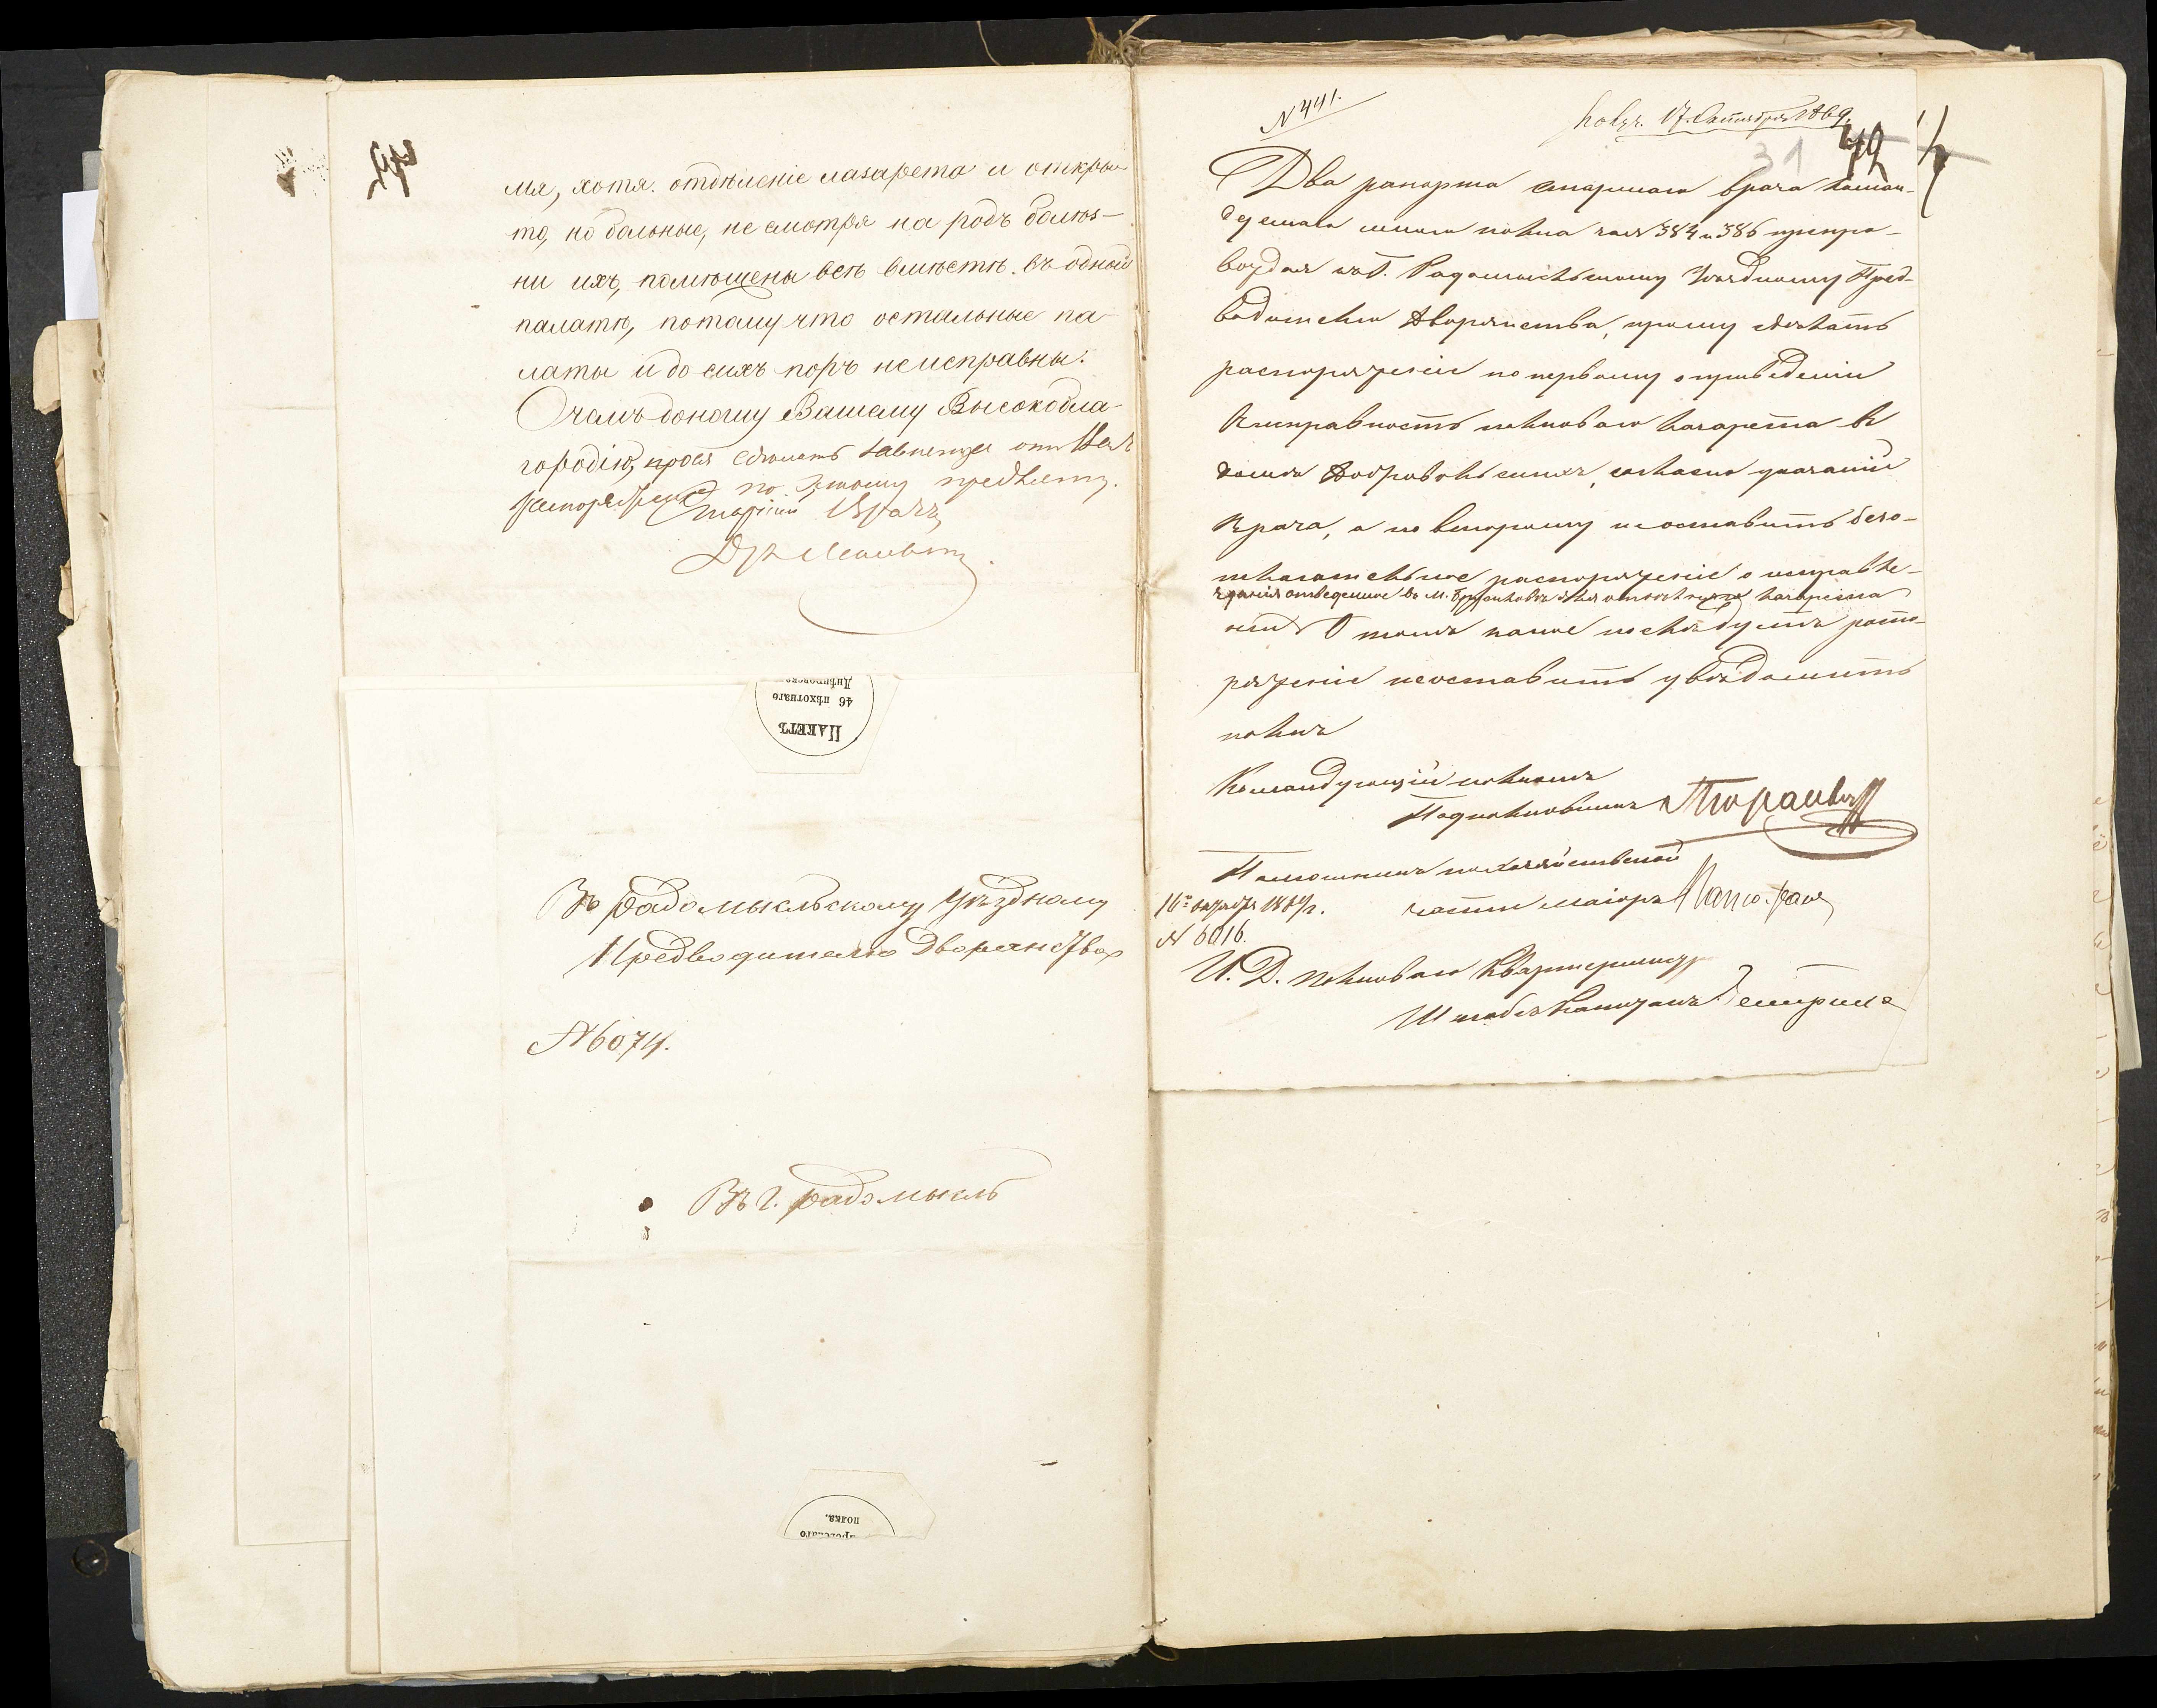 мя, хотя отдѣленіе лазарета и откры-
то, но больные, не смотря на родъ болѣз-
ни ихъ, помѣщены всѣ вмѣстѣ въ одной
палатѣ, потому что остальные па-
латы и до сихъ поръ неисправны.
О чемъ доношу Вашему Высокобла-
городію, прося сдѣлать зависящее отъ Васъ
распоряженіе по этому предмету.
Старшій Врачъ
Пакетъ
46 пѣхотнаго
Днѣпровска
Въ Радомысльскому уѣздному
Предводителю Дворянства
№ 6074.
Въ г. Радомысль
полка.
N 441.
Получ. 17 Октября 1869.
31
Два рапорта старшаго врача коман-
дуемаго мною полка за № 384 и 386 препро-
вождая къ Г. Радомысльскому Уѣздному Пред-
водителю Дворянства, прошу сдѣлать
распоряженіе по первому о приведеніи
въ исправность полковаго лазарета въ
домѣ Добровольскихъ, согласно указанію
врача, а по второму не оставить безо-
тлагательное распоряженіе о исправле-
зданія отведенное въ м. Брусиловѣ для отдѣленія лазарета
ніи. О томъ какое послѣдуетъ распо-
ряженіе неоставить увѣдомить
полкъ
Командующій полкомъ
Подполковникъ
Помошникъ по хозяйственной
части маіоръ
16го октября 1869 г.
№ 6016.
И. Д. полковаго Квартермистра
Штабсъ Капитанъ